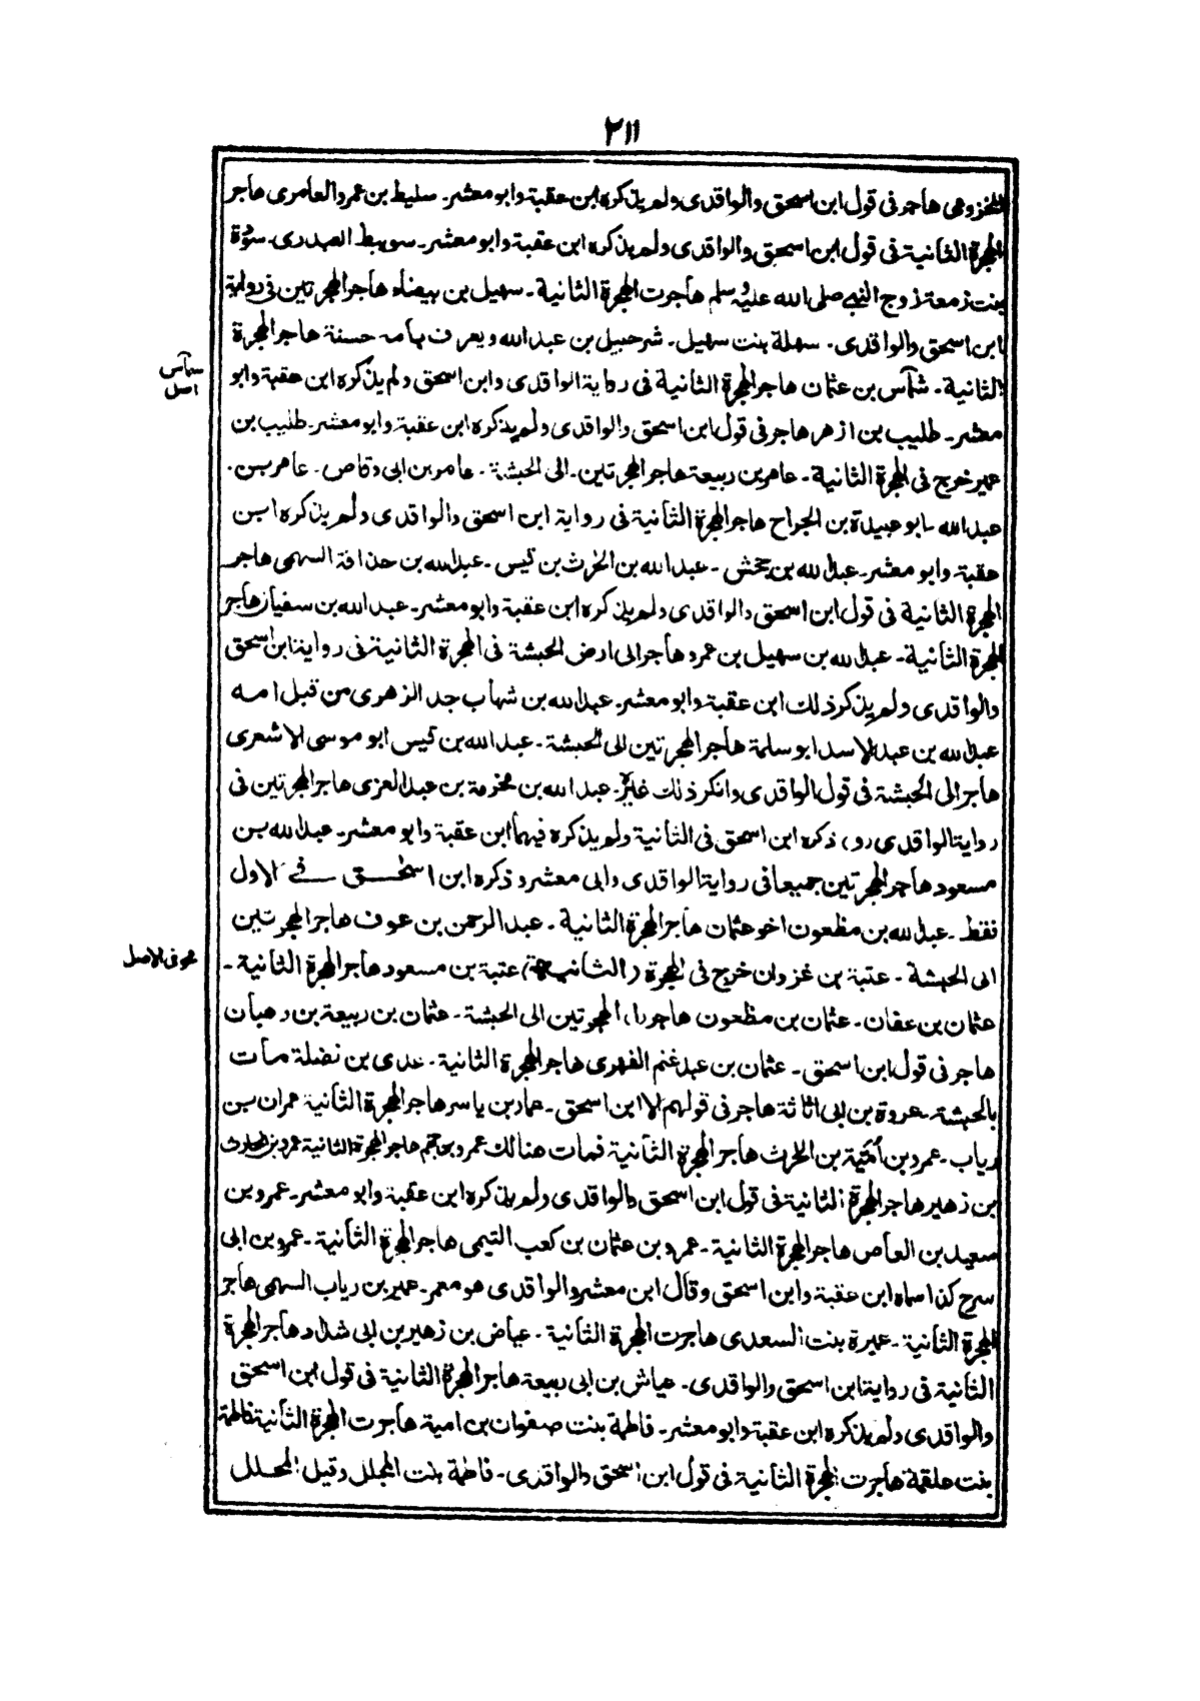 ٢١١
المخزومى هاجر فى قول ابن اسحق والواقدى ولم يذكره ابن عقبة وابو معشر۔ سليط بن عمرو العامرى هاجر
الهجرة الثانية فى قول ابن اسحق والواقدى ولم يذكره ابن عقبة وابو معشر۔ سويبط العبدرى۔ سودة
بنت زمعة زوج النبى صلى الله عليه وسلم هاجرت الهجرة الثانية۔ سهيل بن بيضاء هاجر الهجرتين فى رواية
ابن اسحق والواقدى۔ سهلة بنت سهيل۔ شرحبيل بن عبد الله ويعرف بامه حسنة هاجر الهجرة
الثانية۔ شماس بن عثمان هاجر الهجرة الثانية فى رواية الواقدى وابن اسحق ولم يذكره ابن عقبة وابو
سماس
اصل
معشر۔ طليب بن ازهر هاجر فى قول ابن اسحق والواقدى ولم يذكره ابن عقبة وابو معشر۔ طليب بن
عمير خرج فى الهجرة الثانية۔ عامر بن ربيعة هاجر الهجرتين۔ الى الحبشة۔ عامر بن ابى وقاص۔ عامر بن۔
عبد الله ۔ابو عبيدة بن الجراح هاجر الهجرة الثانية فى رواية ابن اسحق والواقدى ولم يذكره ابن
عقبة وابو معشر۔ عبد الله بن جحش ۔ عبد الله بن الحرث بن قيس ۔ عبد الله بن حذافة السهمى هاجر
الهجرة الثانية فى قول ابن اسحق والواقدى ولم يذكره ابن عقبة وابو معشر۔ عبد الله بن سفيان هاجر
الهجرة الثانية۔ عبد الله بن سهيل بن عمرو هاجر الى ارض الحبشة فى الهجرة الثانية فى رواية ابن اسحق
والواقدى ولم يذكر ذلك ابن عقبة وابو معشر۔ عبد الله بن شهاب جد الزهرى من قبل امه
عبد الله بن عبد الاسد ابو سلمة هاجر الهجرتين الى الحبشة۔ عبد الله بن قيس ابو موسى الاشعرى
هاجر الى الحبشة فى قول الواقدى وانكر ذلك غيره۔ عبد الله بن مخرمة بن عبد العزى هاجر الهجرتين فى
رواية الواقدى (و) ذكره ابن اسحق فى الثانية ولم يذكره فيهما ابن عقبة وابو معشر۔ عبد الله بن
مسعود هاجر الهجرتين جميعا فى رواية الواقدى وابى معشر وذكره ابن اسحق فى الاول
فقط ۔ عبد الله بن مظعون اخو عثمان هاجر الهجرة الثانية ۔ عبد الرحمن بن عوف هاجر الهجرتين
الى الحبشة ۔ عتبة بن غزوان خرج فى الهجرة (الثانية) عتبة بن مسعود هاجر الهجرة الثانية ۔
محو فى الاصل
عثمان بن عفان۔ عثمان بن مظعون هاجر(ا) الهجرتين الى الحبشة۔ عثمان بن ربيعة بن وهبان
هاجر فى قول ابن اسحق۔ عثمان بن عبد غنم الفهرى هاجر الهجرة الثانية۔ عدى بن نضلة مات
بالحبشة۔ عروة بن ابى اثاثة هاجر فى قولهم الا ابن اسحق۔ عمار بن ياسر هاجر الهجرة الثانية عمران بن
رياب۔ عمرو بن أمية بن الحرث هاجر الهجرة الثانية فمات هنالك عمرو بن جهم هاجر الهجرة الثانية عمرو بن الحارث
بن زهير هاجر الهجرة الثانية فى قول ابن اسحق والواقدى ولم يذكره ابن عقبة وابو معشر۔ عمرو بن
سعيد بن العاص هاجر الهجرة الثانية ۔ عمرو بن عثمان بن كعب التيمى هاجر الهجرة الثانية۔ عمرو بن ابى
سرح كذا سماه ابن عقبة وابن اسحق وقال ابن معشر والواقدى هو معمر۔ عمير بن رياب السهمى هاجر
الهجرة الثانية۔ عميرة بنت السعدى هاجرت الهجرة الثانية۔ عياض بن زهير بن ابى شداد هاجر الهجرة
الثانية فى رواية ابن اسحق والواقدى۔ عياش بن ابى ربيعة هاجر الهجرة الثانية فى قول ابن اسحق
والواقدى ولم يذكره ابن عقبة وابو معشر۔ فاطمة بنت صفوان بن امية هاجرت الهجرة الثانية فاطمة
بنت علقمة هاجرت الهجرة الثانية فى قول ابن اسحق والواقدى۔ فاطمة بنت المجلل وقيل المحلل